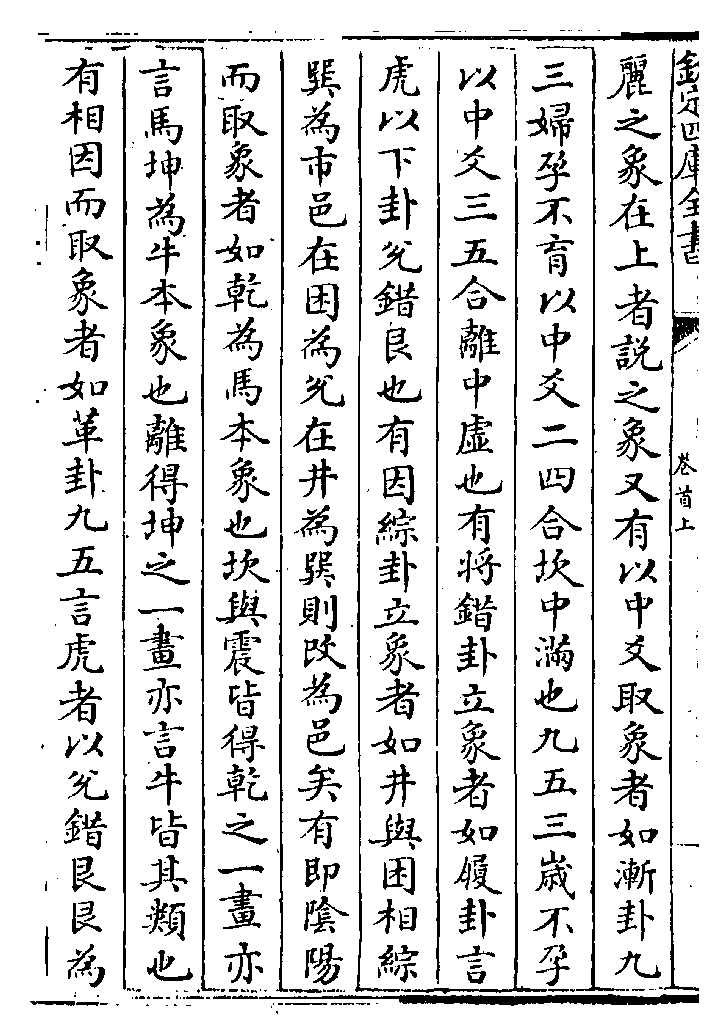 欽定四庫全書
卷首上
麗之象在上者說之象又有以中爻取象者如漸卦九
三婦孕不育以中爻二四合坎中滿也九五三歲不孕
以中爻三五合離中虛也有將錯卦立象者如履卦言
虎以下卦兊錯艮也有因綜卦立象者如井與困相綜
巽為市邑在困為兊在井為巽則改為邑矣有即陰陽
而取象者如乾為馬本象也坎與震皆得乾之一畫亦
言馬坤為牛本象也離得坤之一畫亦言牛皆其類也
有相因而取象者如革卦九五言虎者以兊錯艮艮為